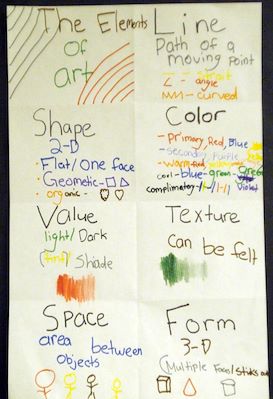 The Elements
of
art
Line
Path of a
moving point
- strait
- angle
- curved
Shape
2-D
Flat/One face
Geometic-
organic-
Color
- primary, Red, Blue
- secondary Purple
- warm Red yellow
cool-blue-green-
Violet
complimetary-
Value
light/Dark
(tint)/Shade
Texture
Can be felt
Space
area between
objects
Form
3-D
(Multiple Faces/sticks out